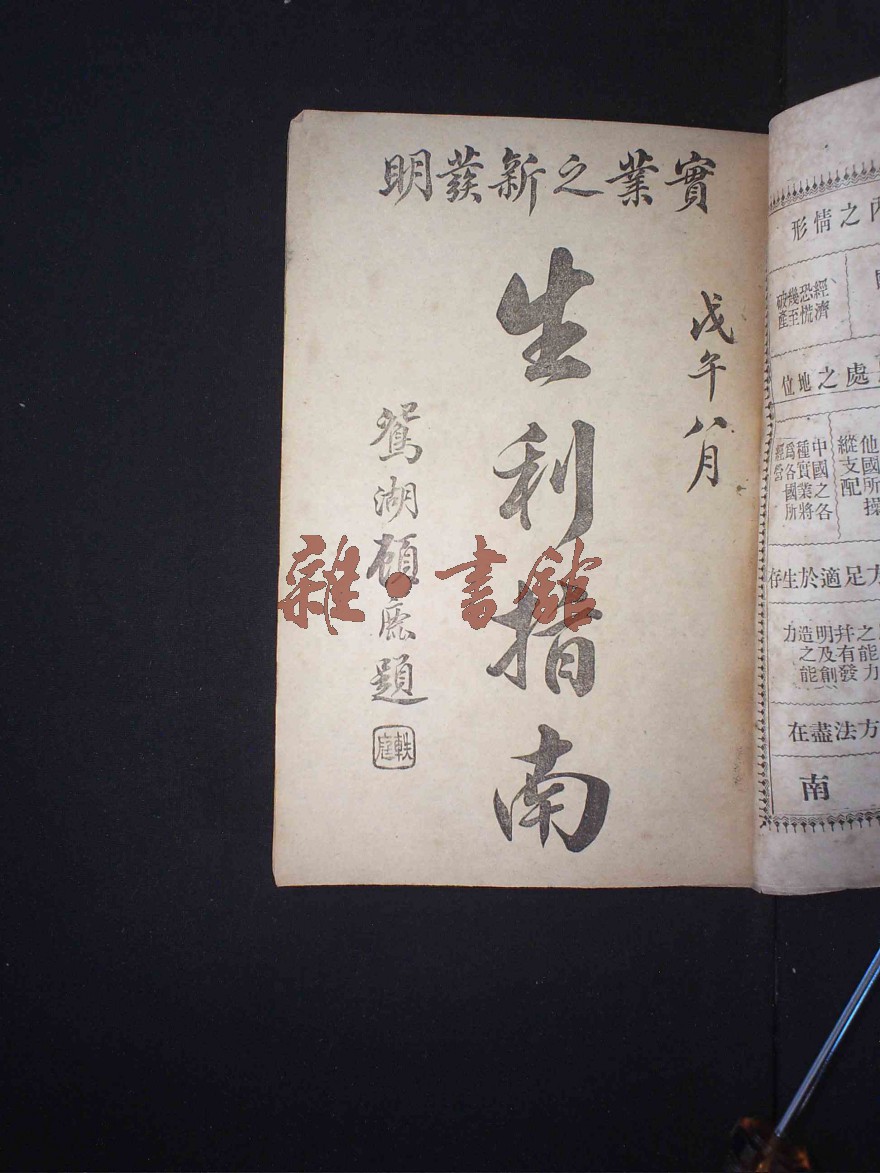 實業之新發明
戊午八月
生利指南
鴛湖顧廌題
軼庭
雜·書館
內之情形
經濟恐慌幾至破產
處之地位
他國所操縱支配
中國之各種實業將爲各國所經營
方足適於生存
之能力
幷有發明及創造之能力
方法盡在
南